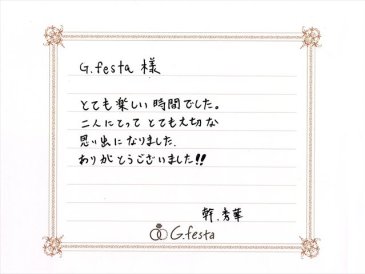 G.festa 様
とても楽しい時間でした。
二人にとって とても大切な
思い出になりました.
ありがとうございました!!
幹.秀華
G.festa